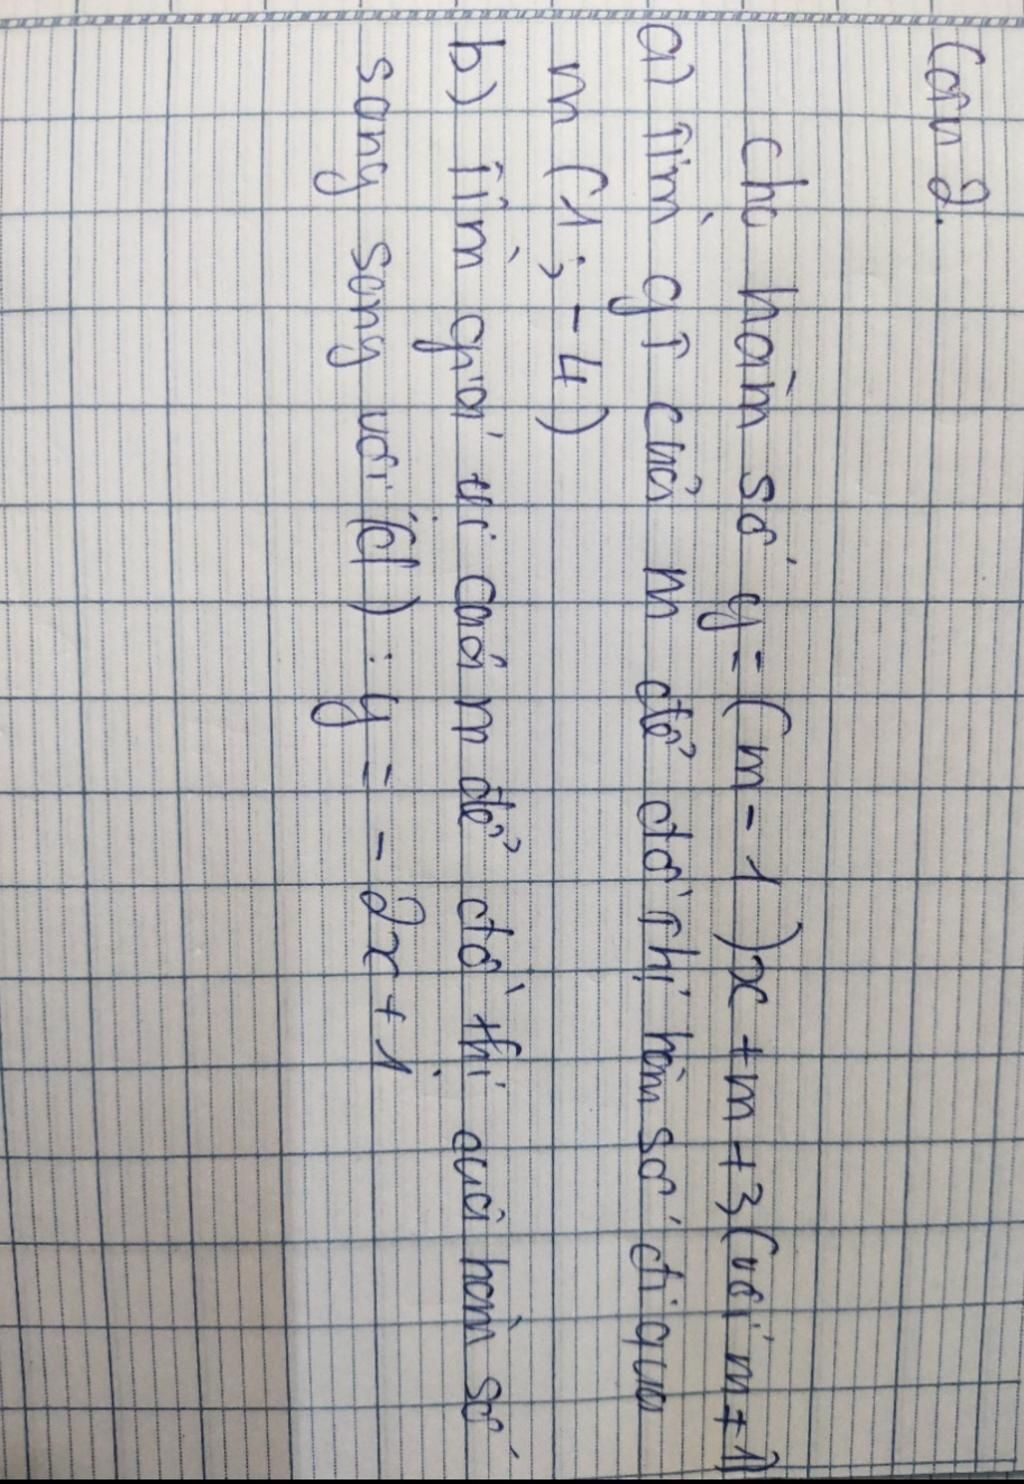 Câu 2.
Cho hàm số y = (m - 1)x + m + 3 (với m ≠ 1)
a) Tìm gT của m để đồ Thị hàm số đi qua
M (1 ; -4)
b) Tìm giá trị của m để đồ thị của hàm số
song song với (d) : y = -2x + 1